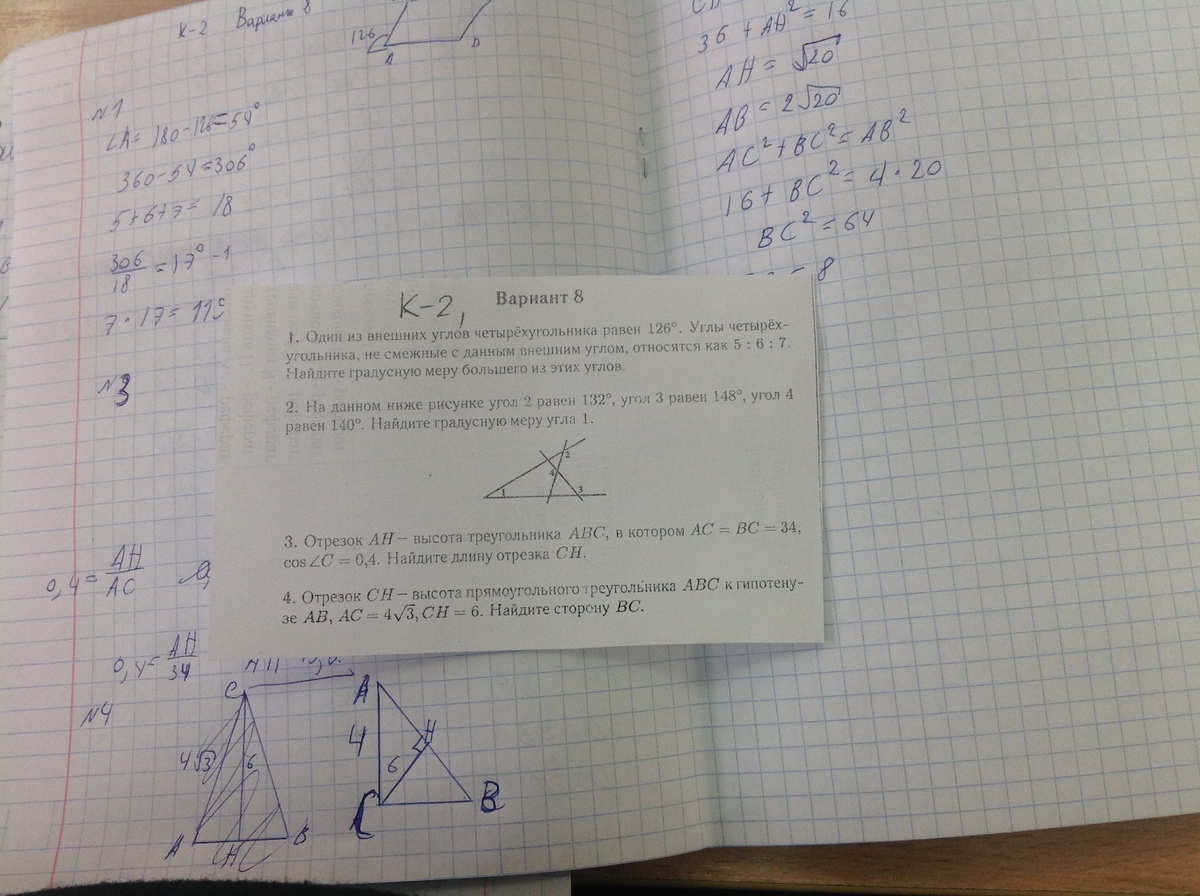 К-2 Вариант 8
126
A
D
№1
∠A = 180-126=54°
360-54=306°
5+6+7= 18
306/18 =17° -1
7·17= 119
№3
0,4 = AH/AC
0,4= AH/34
№4
C
4√3
6
A
H
B
A
4
6
H
C
B
36 + AH² = 16
AH = √20
AB = 2√20
AC² + BC² = AB²
16 + BC² = 4·20
BC² = 64
= 8
К-2, Вариант 8
1. Один из внешних углов четырёхугольника равен 126°. Углы четырёх-
угольника, не смежные с данным внешним углом, относятся как 5 : 6 : 7.
Найдите градусную меру большего из этих углов.
2. На данном ниже рисунке угол 2 равен 132°, угол 3 равен 148°, угол 4
равен 140°. Найдите градусную меру угла 1.
2
4
1
3
3. Отрезок AH — высота треугольника ABC, в котором AC = BC = 34,
cos∠C = 0,4. Найдите длину отрезка CH.
4. Отрезок CH — высота прямоугольного треугольника ABC к гипотену-
зе AB, AC = 4√3, CH = 6. Найдите сторону BC.